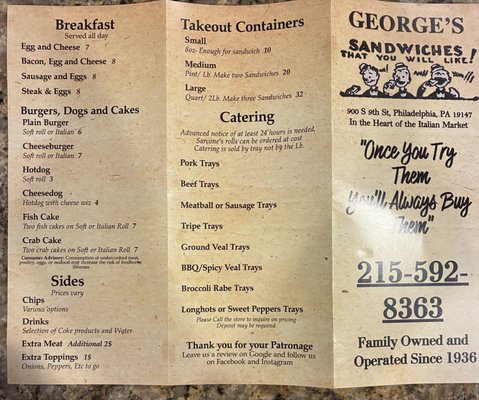 Breakfast
Served all day
Egg and Cheese 7
Bacon, Egg and Cheese 8
Sausage and Eggs 8
Steak & Eggs 8
Burgers, Dogs and Cakes
Plain Burger
Soft roll or Italian 6
Cheeseburger
Soft roll or Italian 7
Hotdog
Soft roll 3
Cheesedog
Hotdog with cheese wiz 4
Fish Cake
Two fish cakes on Soft or Italian Roll 7
Crab Cake
Two crab cakes on Soft or Italian Roll 7
Consumer Advisory: Consumption of undercooked meat,
poultry, eggs, or seafood may increase the risk of foodborne
illnesses
Sides
Prices vary
Chips
Various options
Drinks
Selection of Coke products and Water
Extra Meat Additional 2$
Extra Toppings 1$
Onions, Peppers, Etc to go
Takeout Containers
Small
8oz- Enough for sandwich 10
Medium
Pint/ Lb. Make two Sandwiches 20
Large
Quart/ 2Lb. Make three Sandwiches 32
Catering
Advanced notice of at least 24 hours is needed,
Sarcine's rolls can be ordered at cost
Catering is sold by tray not by the Lb.
Pork Trays
Beef Trays
Meatball or Sausage Trays
Tripe Trays
Ground Veal Trays
BBQ/Spicy Veal Trays
Broccoli Rabe Trays
Longhots or Sweet Peppers Trays
Please Call the store to inquire on pricing
Deposit may be required
Thank you for your Patronage
Leave us a review on Google and follow us
on Facebook and Instagram
GEORGE'S
SANDWICHES
THAT YOU WILL LIKE!
900 S 9th St, Philadelphia, PA 19147
In the Heart of the Italian Market
"Once You Try
Them
You'll Always Buy
Them"
215-592-
8363
Family Owned and
Operated Since 1936